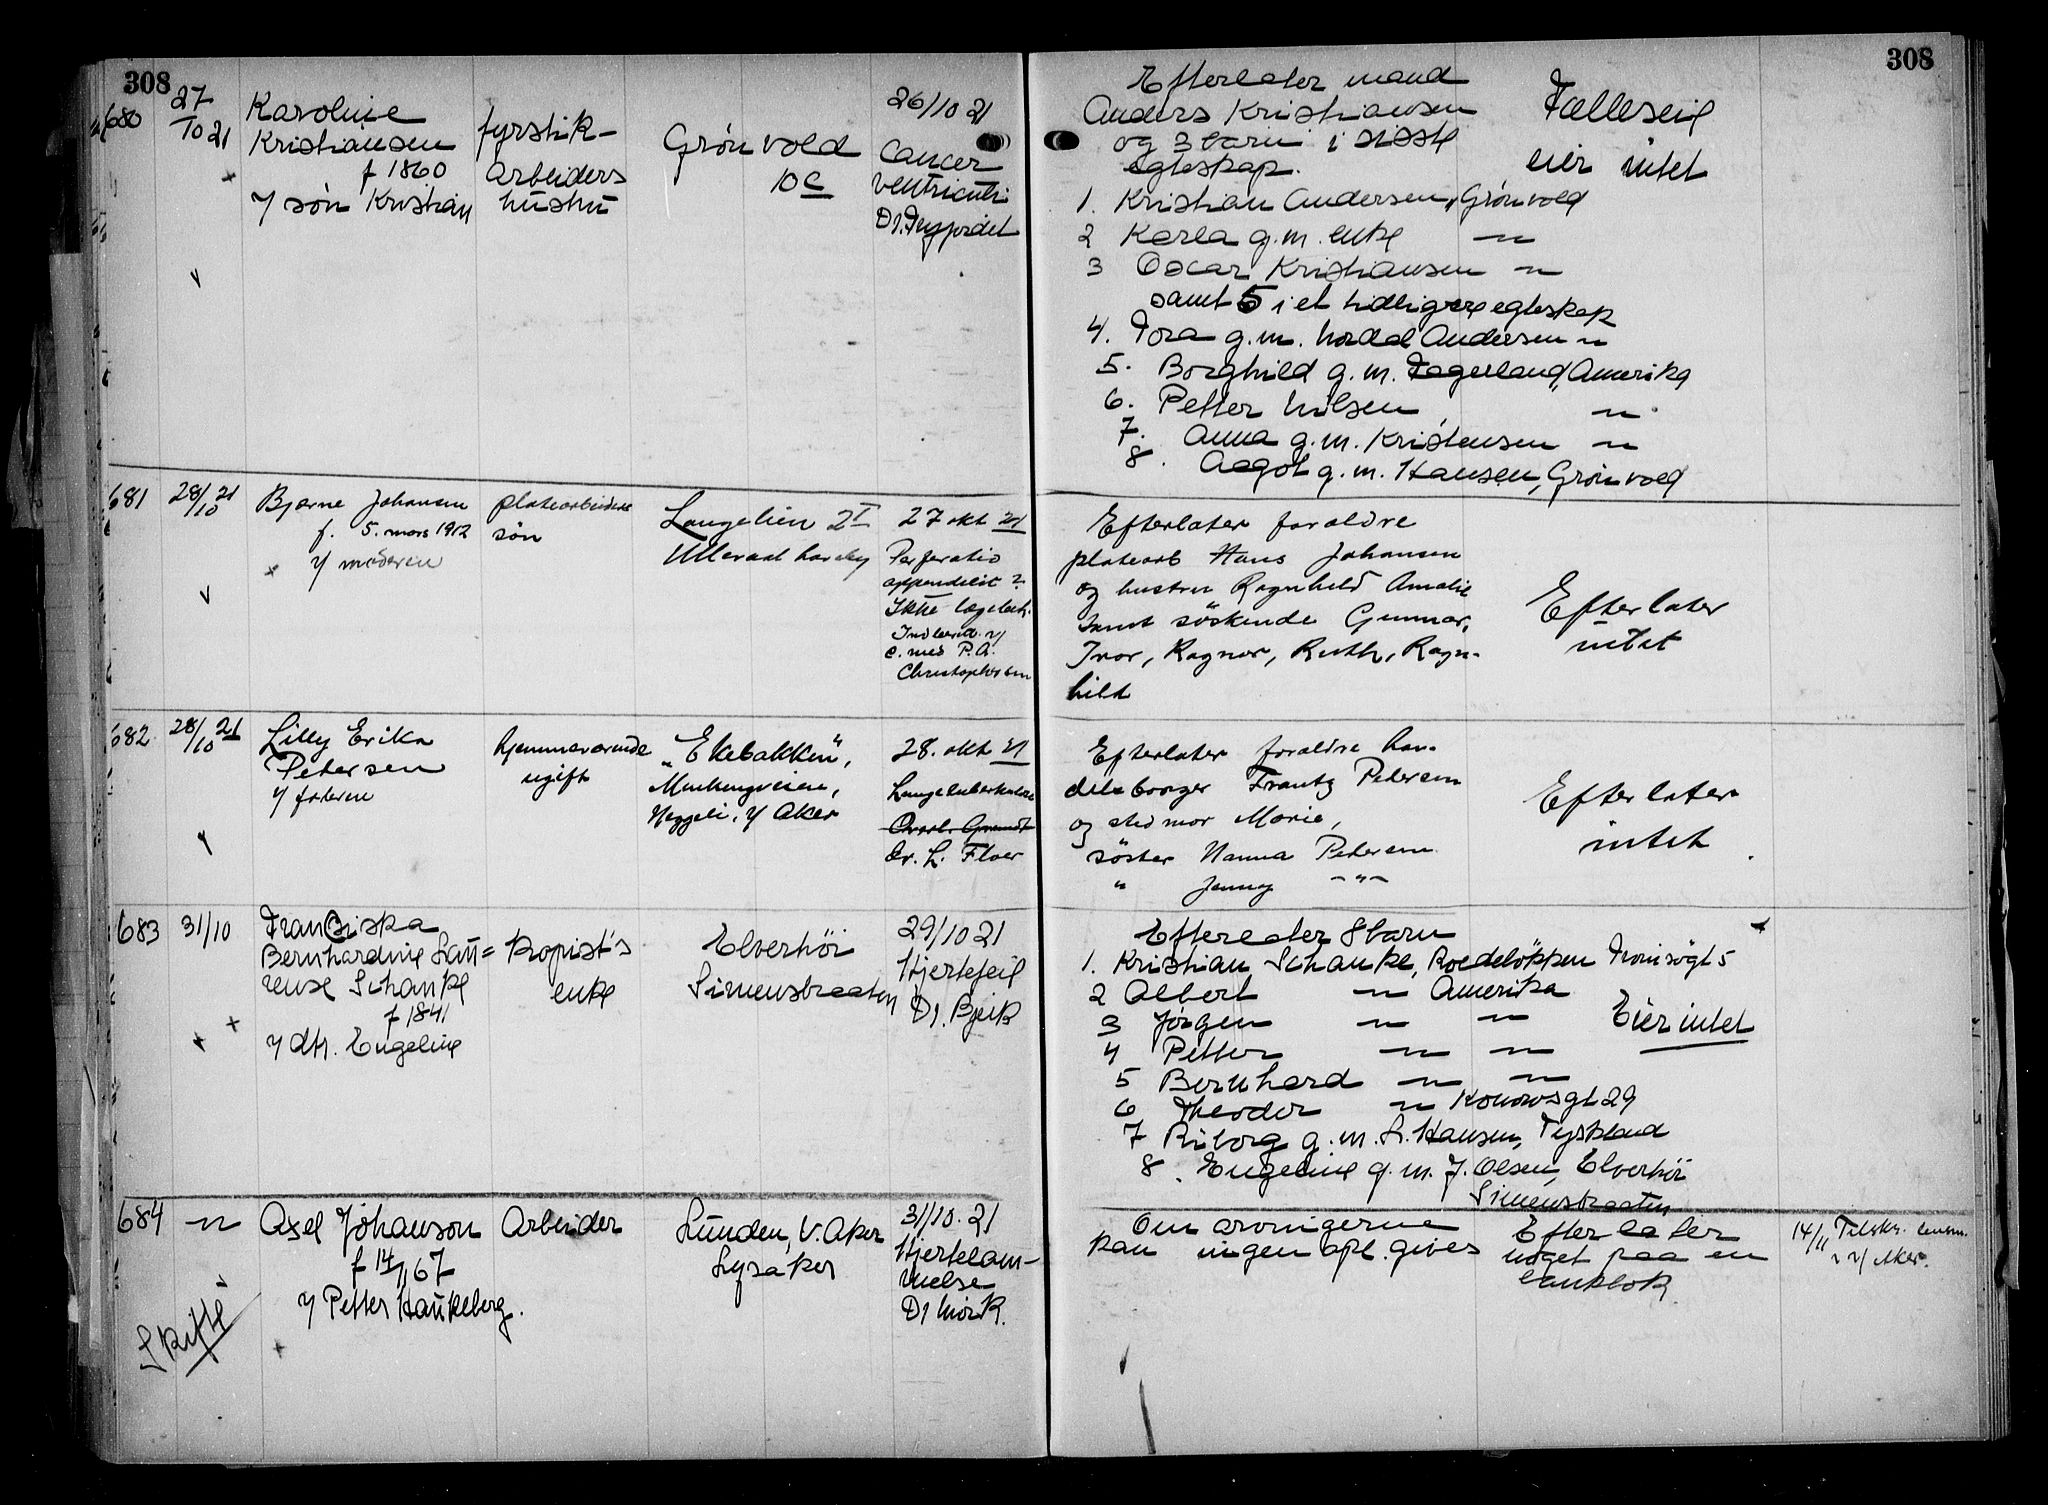 308
308
680
27/10 21
Karoline
Kristiansen
f 1860
v/ søn Kristian
fyrstik-
arbeiders
hustru
Grønvold
10c
26/10 21
Cancer
ventriculi
Efterlater mand
Anders Kristiansen
og 3 barn i siste
egteskap.
1. Kristian Andersen, Grønvold
2 Karla g.m. enke —"—
3 Oscar Kristiansen —"—
samt 5 i et tidligere egteskap
4. Tora g.m. Nordal Andersen —"—
5. Borghild g.m. Fagerland, Amerika
6. Petter Nilsen —"—
7. Anna g.m. Kristensen —"—
8. Aagot g.m. Hansen, Grønvold
Fælleseie
eier intet
681
28/10 21
Bjarne Johansen
f. 5. mars 1912
v/ moderen
platearbeiders
søn
Langelien 2 I
Ullevaal haveby
27 okt 21
Perforatio
appendicit ?
Ikke lægebeh.
c. med P.A.
Christophersen
Efterlater forældre
platearb Hans Johansen
og hustru Ragnhild Amalie
samt söskende Gunnar,
Ivar, Ragnar, Ruth, Ragn-
hild
Efterlater
intet
682
28/10 21
Lilly Erika
Petersen
v/ faderen
hjemmeværende
ugift
"Ekebakken",
Heggeli, V Aker
28. okt 21
Lungetuberkulose
Dr. L. Floer
Efterlater forældre han-
delsborger Frantz Petersen
og stedmor Marie,
söster Nanna Petersen
" Jenny —"—
Efterlater
intet
683
31/10
Franciska
Bernhardine Lau=
rense Schanke
f 1841
v/ dtr. Engeline
kopist's
enke
Elverhöi
Simensbraaten
29/10 21
Hjertefeil
Dr. Bjeik
Efterlater 8 barn
1. Kristian Schanke, Rodeløkken Tromsøgt 5
2 Albert —"— Amerika
3 Jørgen —"— —"—
4 Petter —"— —"—
5 Bernhard —"— —"—
6 Theodor —"— Konowsgt 29
7 Riborg g.m. L. Hansen, Tyskland
8. Engeline g.m. J. Olsen, Elverhöi
Simensbraaten
Eier intet
684
—"—
Axel Johanson
f 14/11 67
v/ Petter Haukeberg.
Skifte
Arbeider
Lunden, V. Aker
Lysaker
31/10. 21
Hjertelam-
melse
Dr Mörk.
Om arvingerne
kan ingen opl. gives
Efterlater
noget paa en
bankbok
14/11 Tilskr. lensm.
i V/ Aker.